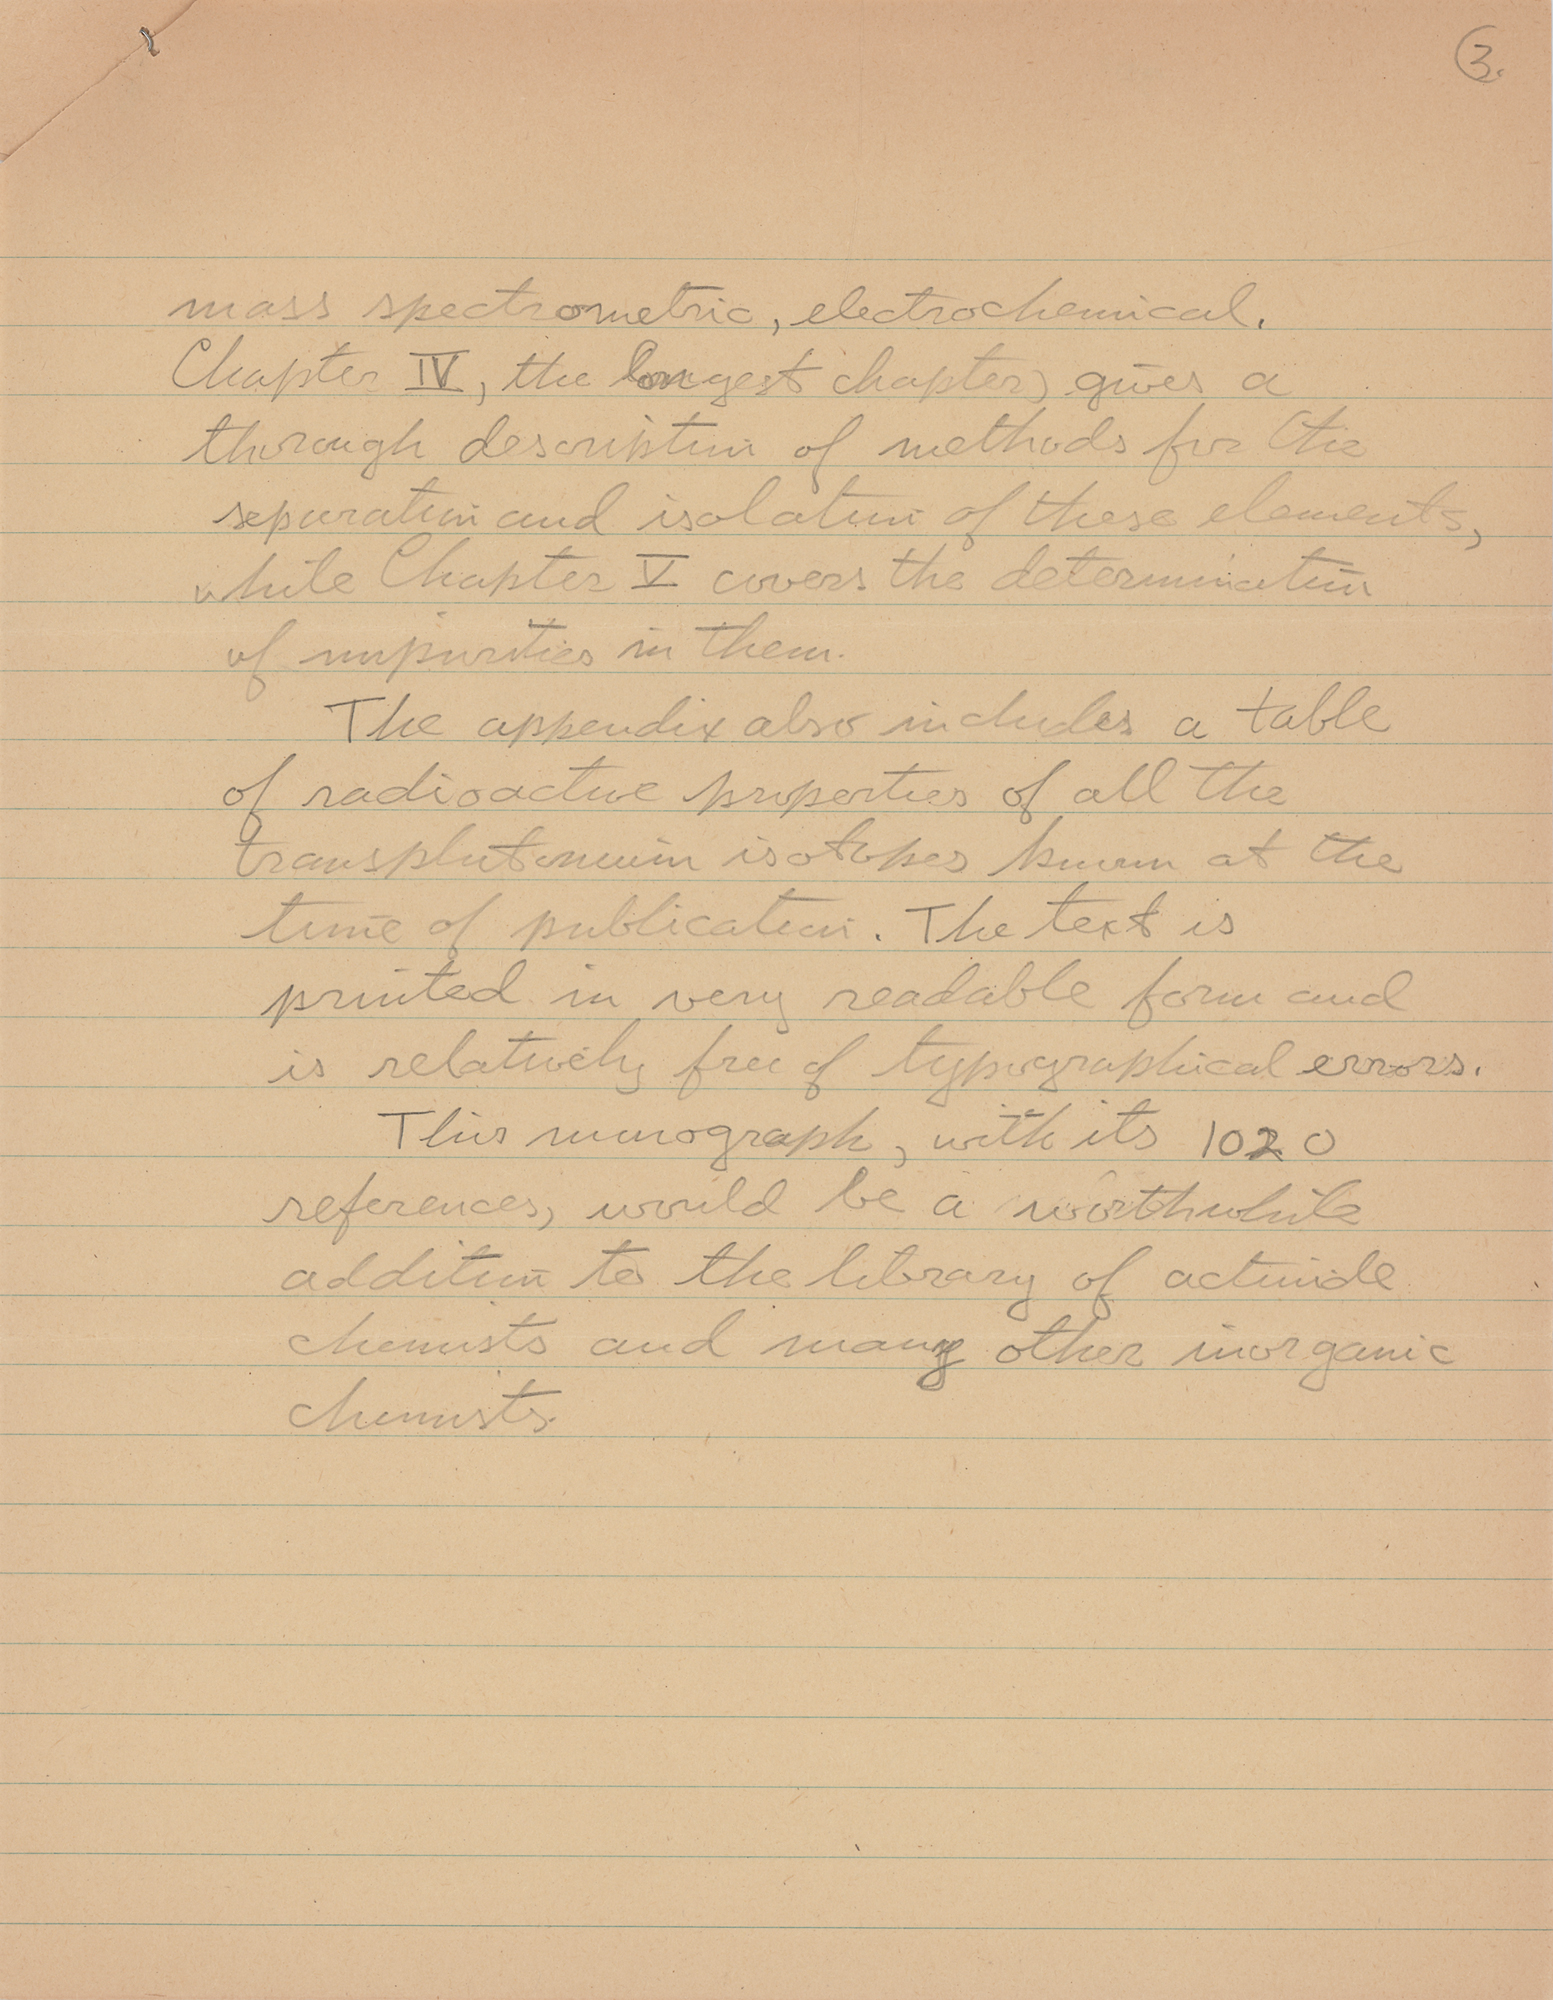 3.
mass spectrometric, electrochemical.
Chapter IV, the longest chapter, gives a
thorough description of methods for the
separation and isolation of these elements,
while Chapter V covers the determination
of impurities in them.
The appendix also includes a table
of radioactive properties of all the
transplutonium isotopes known at the
time of publication. The text is
printed in very readable form and
is relatively free of typographical errors.
This monograph, with its 1020
references, would be a worthwhile
addition to the library of actinide
chemists and many other inorganic
chemists.